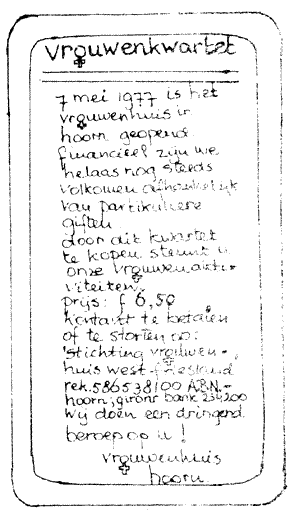 vrouwenkwartet
7 mei 1977 is het
vrouwenhuis in
hoorn geopend
financieel zijn we
helaas nog steeds
volkomen afhankelijk
van partikuliere
giften
door dit kwartet
te kopen steunt u
onze vrouwenakti-
viteiten.
prijs: f 6,50
kontant te betalen
of te storten op:
'stichting vrouwen-
huis west-friesland
rek. 586538100 ABN.-
hoorn, gironr bank 234200
wij doen een dringend
beroep op u!
vrouwenhuis
hoorn